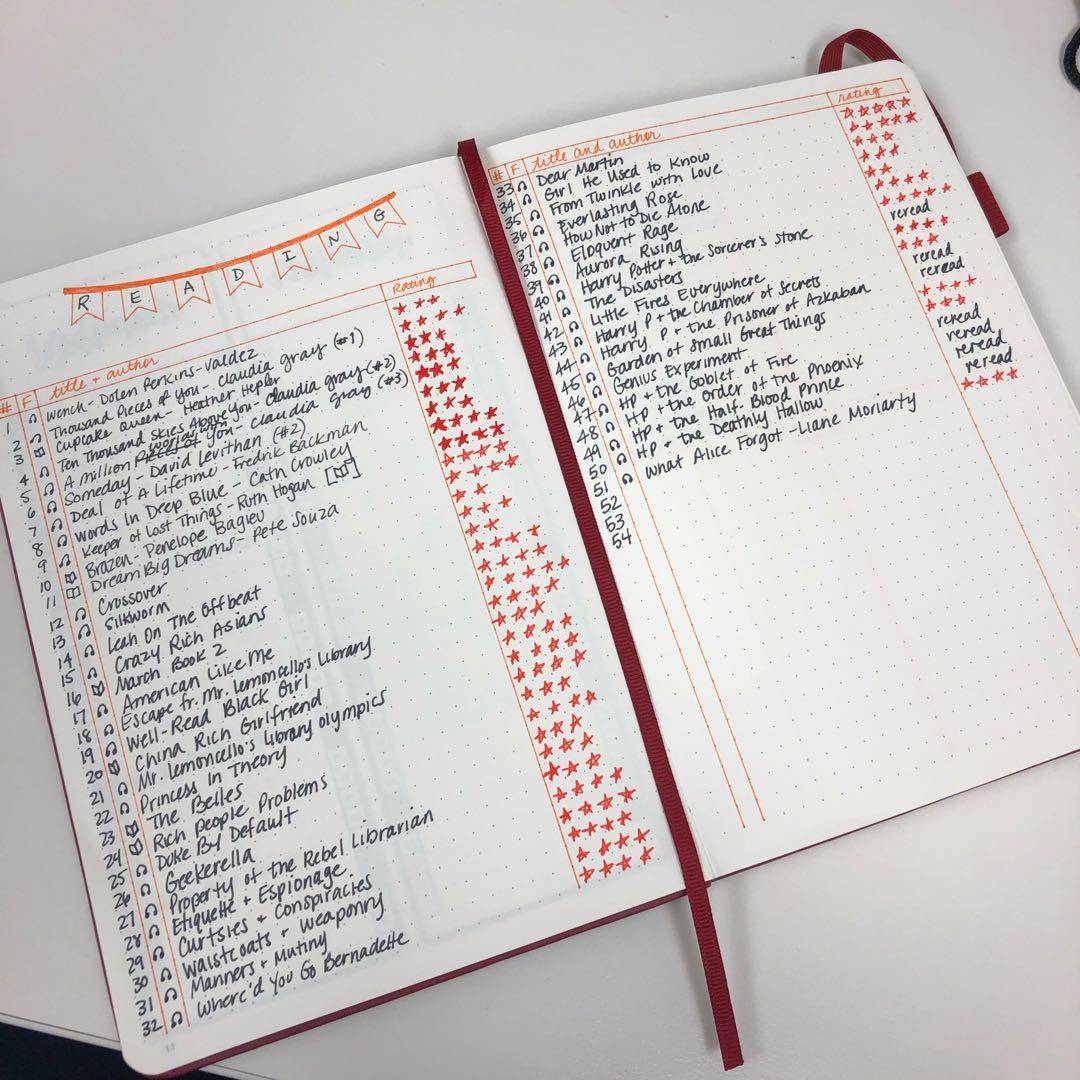 READING
# F title + author Rating
1 Wench - Dolen Perkins-Valdez
2 Thousand Pieces of You - Claudia Gray (#1)
3 Cupcake Queen - Heather Hepler
4 Ten Thousand Skies Above You - Claudia Gray (#2)
5 A Million Pieces worlds of You - Claudia Gray (#3)
6 Someday - David Levithan (#2)
7 Deal of A Lifetime - Fredrik Backman
8 Words In Deep Blue - Cath Crowley
9 Keeper of Lost Things - Ruth Hogan
10 Brazen - Penelope Bagieu
11 Dream Big Dreams - Pete Souza
12 Crossover
13 Silkworm
14 Leah On The Offbeat
15 Crazy Rich Asians
16 March Book 2
17 American Like Me
18 Escape fr. Mr. Lemoncello's Library
19 Well-Read Black Girl
20 China Rich Girlfriend
21 Mr. Lemoncello's Library Olympics
22 Princess In Theory
23 The Belles
24 Rich People Problems
25 Duke By Default
26 Geekerella
27 Property of the Rebel Librarian
28 Etiquette + Espionage
29 Curtsies + Conspiracies
30 Waistcoats + Weaponry
31 Manners + Mutiny
32 Where'd You Go Bernadette
11
# F title and author rating
33 Dear Martin
34 Girl He Used to Know
35 From Twinkle with Love
36 Everlasting Rose
37 How Not to Die Alone
38 Eloquent Rage
39 Aurora Rising
40 Harry Potter + the Sorcerer's Stone reread
41 The Disasters
42 Little Fires Everywhere
43 Harry P + the Chamber of Secrets reread
44 Harry P + the Prisoner of Azkaban reread
45 Garden of Small Great Things
46 Genius Experiment
47 HP + the Goblet of Fire reread
48 HP + the Order of the Phoenix reread
49 HP + the Half Blood Prince reread
50 HP + the Deathly Hallow reread
51 What Alice Forgot - Liane Moriarty
52
53
54